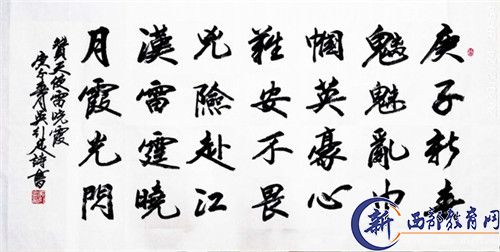 庚子新春
魑魅亂巾
帼英豪心
難安不畏
兇險赴江
漢雷霆曉
月霞光閃
贊天使雷晓霞
庚子春吴引詩書
新 西部教育网